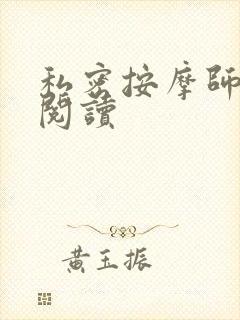 私密按摩師
閱讀
黃玉振